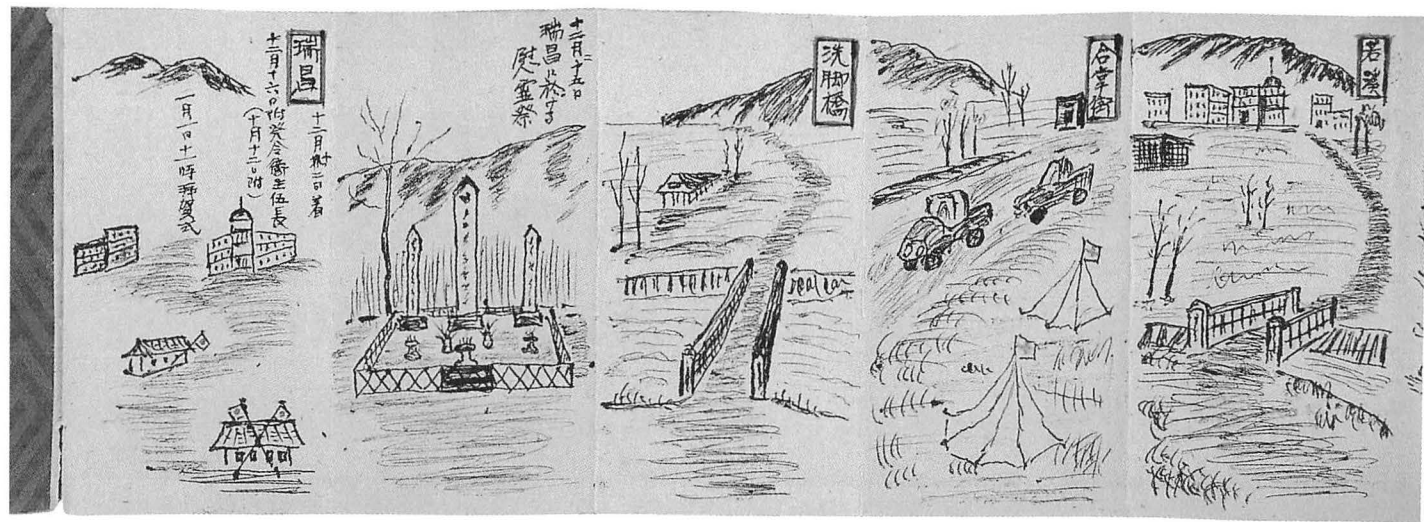 若溪
合掌街
洗脚橋
十二月二十五日
瑞昌に於する
慰霊祭
瑞昌
十二月廿二日着
十二月十六日附発令衛生伍長
(十月十二日附)
一月一日十一時拝賀式